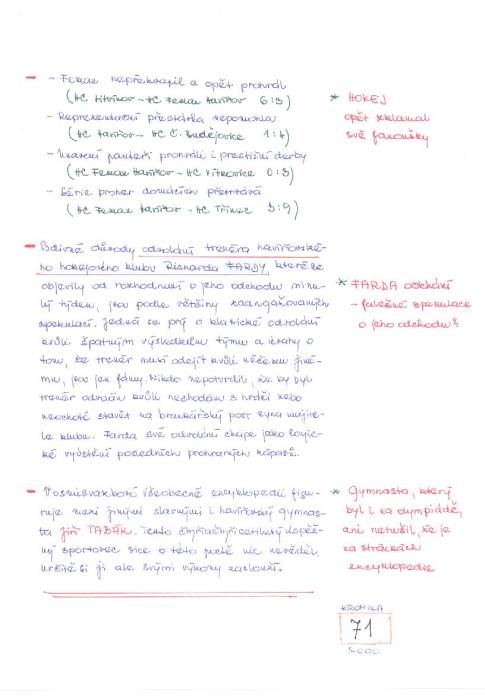 - Femax nepřekvapil a opět prohrál
(HC Litvínov - HC Femax Havířov 6:3)
- Reprezentační přestávka nepomohla
(HC Havířov - HC Č. Budějovice 1:4)
- Unavení panteři prohráli i prestižní derby
(HC Femax Havířov - HC Vítkovice 0:3)
- Série proher domácích přetrvává
(HC Femax Havířov - HC Třinec 3:9)
* HOKEJ
opět zklamal
své fanoušky
- důvody odvolání trenéra havířovské-
ho hokejového klubu Richarda FARDY, které se
objevily od rozhodnutí o jeho odchodu minu-
lý týden, jsou podle většiny zaangažovaných
spekulací. Jedná se prý o klasické odvolání
kvůli špatným výsledkům týmu a úvahy o
tom, že trenér musí odejít kvůli něčemu jiné-
mu, jsou jen fámy. Nikdo nepotvrdil, že by byl
trenér odvolán kvůli neshodám s hráči nebo
neochotě stavět na brankářský post syna majite-
le klubu. Farda své odvolání chápe jako logic-
ké vyústění posledních prohraných zápasů.
* FARDA odchází
- falešné spekulace
o jeho odchodu?
- V osmisvazkové všeobecné encyklopedii figu-
ruje mezi jinými slavnými i havířovský gymnas-
ta Jiří TABÁK. Tento čtyřiačtyřicetiletý úspěš-
ný sportovec sice o této poctě nic nevěděl,
určitě si ji ale svými výkony zasloužil.
* Gymnasta, který
byl i na olympiádě,
ani netušil, že je
na stránkách
encyklopedie
KRONIKA
71
2000